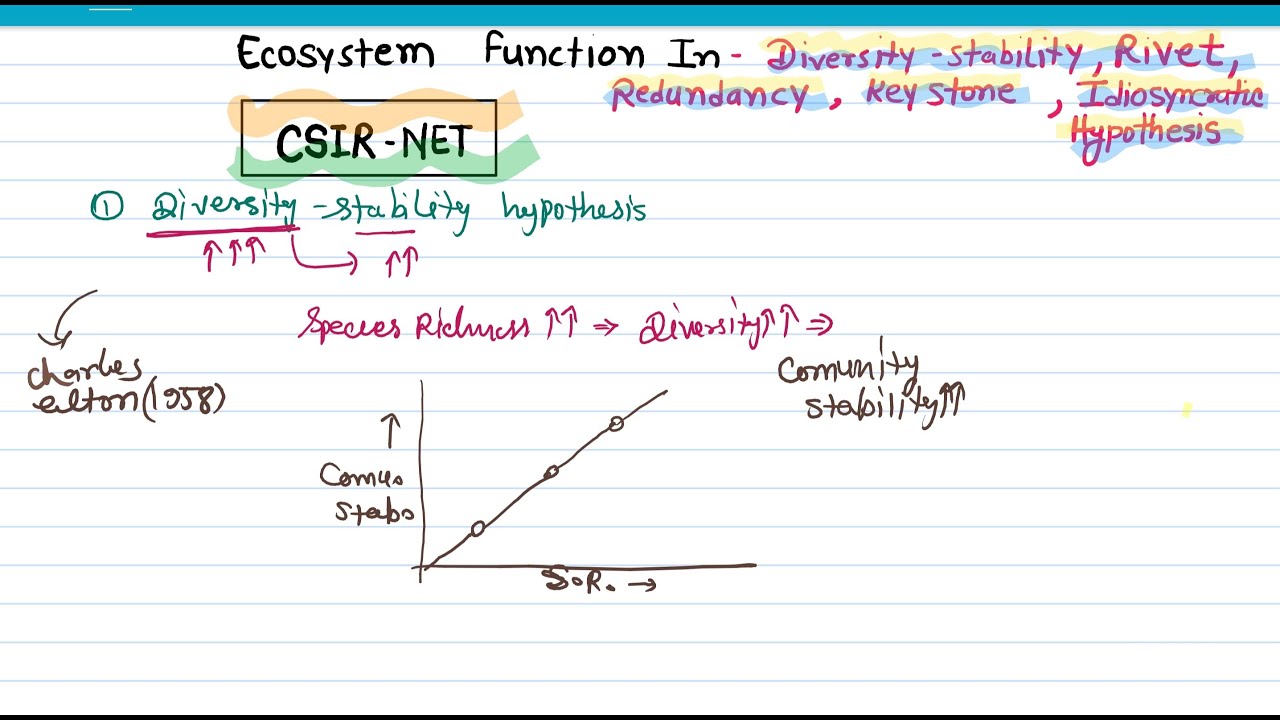 Ecosystem Function In - Diversity-stability, Rivet,
Redundancy, keystone, Idiosyncratic
Hypothesis
CSIR-NET
① Diversity-stability hypothesis
↑↑↑ → ↑↑
Species Richness ↑↑ ⇒ Diversity↑↑ ⇒
Comunity
stability↑↑
charles
elton(1958)
↑
Comu.
stab.
S.R. →